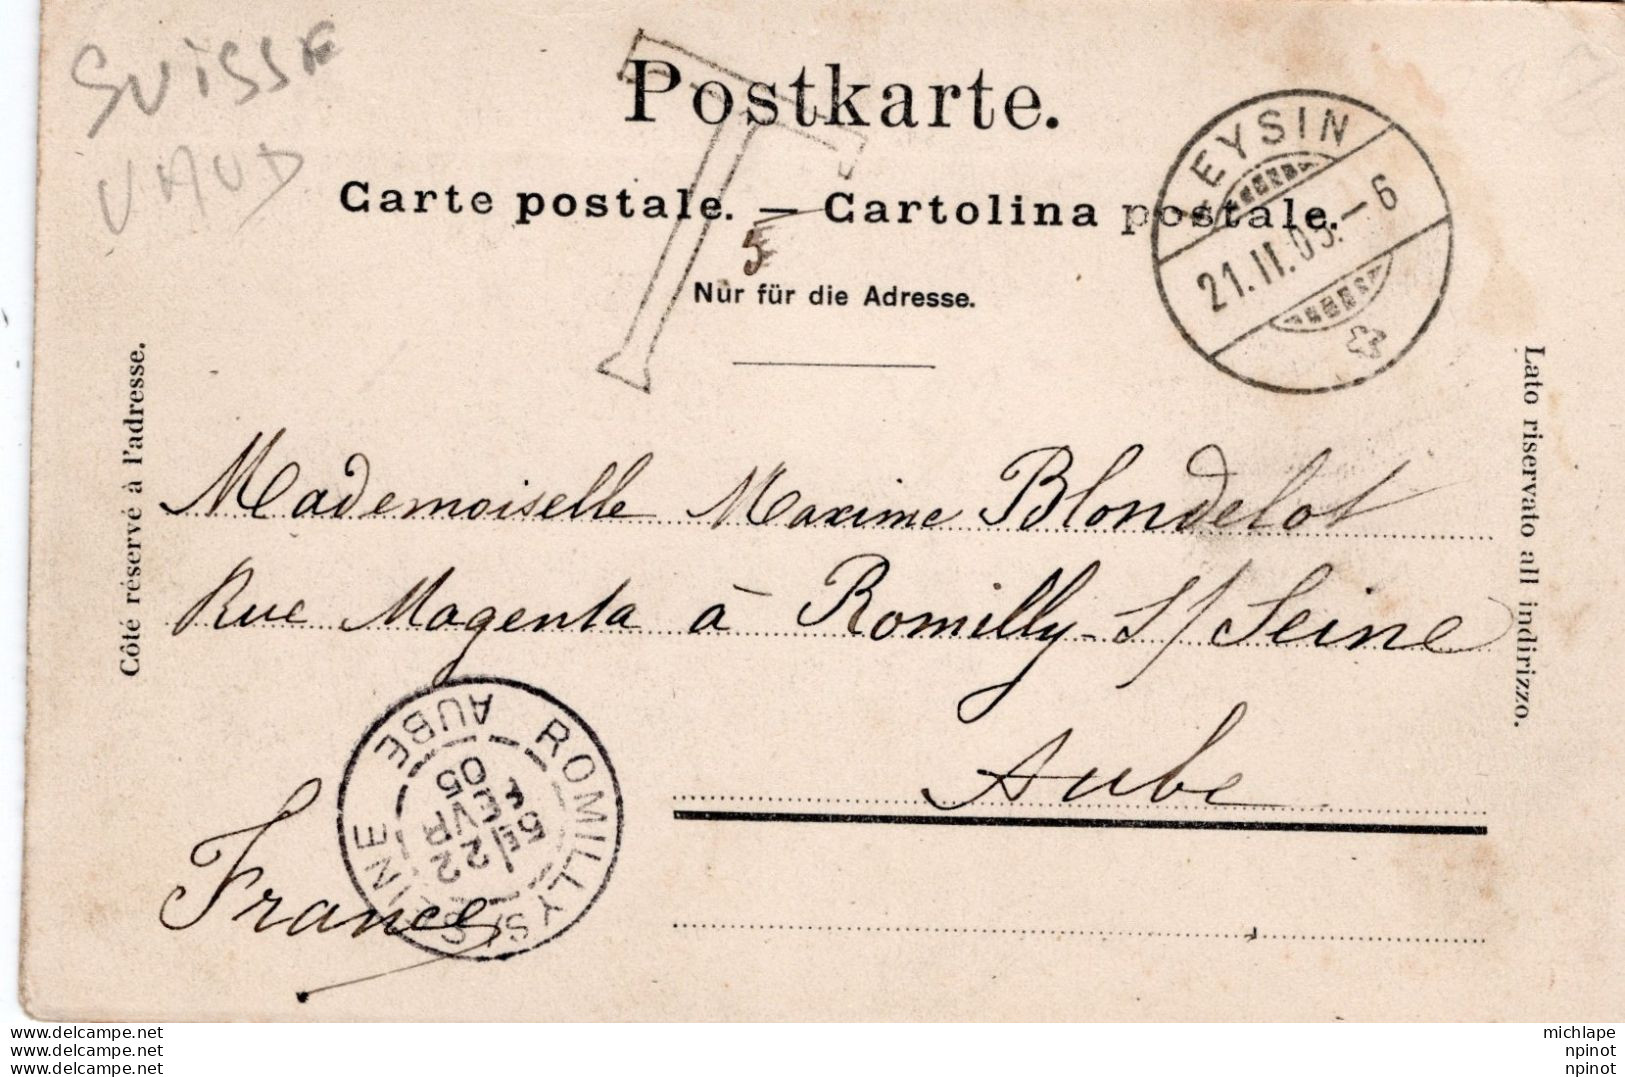 SUISSE
VAUD
T
Postkarte.
Carte postale. — Cartolina postale.
5
Nur für die Adresse.
LEYSIN
21.II.05.–6
Côté réservé à l'adresse.
Lato riservato all indirizzo.
Mademoiselle Maxime Blondelot
Rue Magenta à Romilly S/ Seine
Aube
France
ROMILLY S/ SEINE
AUBE
22
FEVR
05
delcampe.net
delcampe.net
delcampe.net
michlape
npinot
npinot